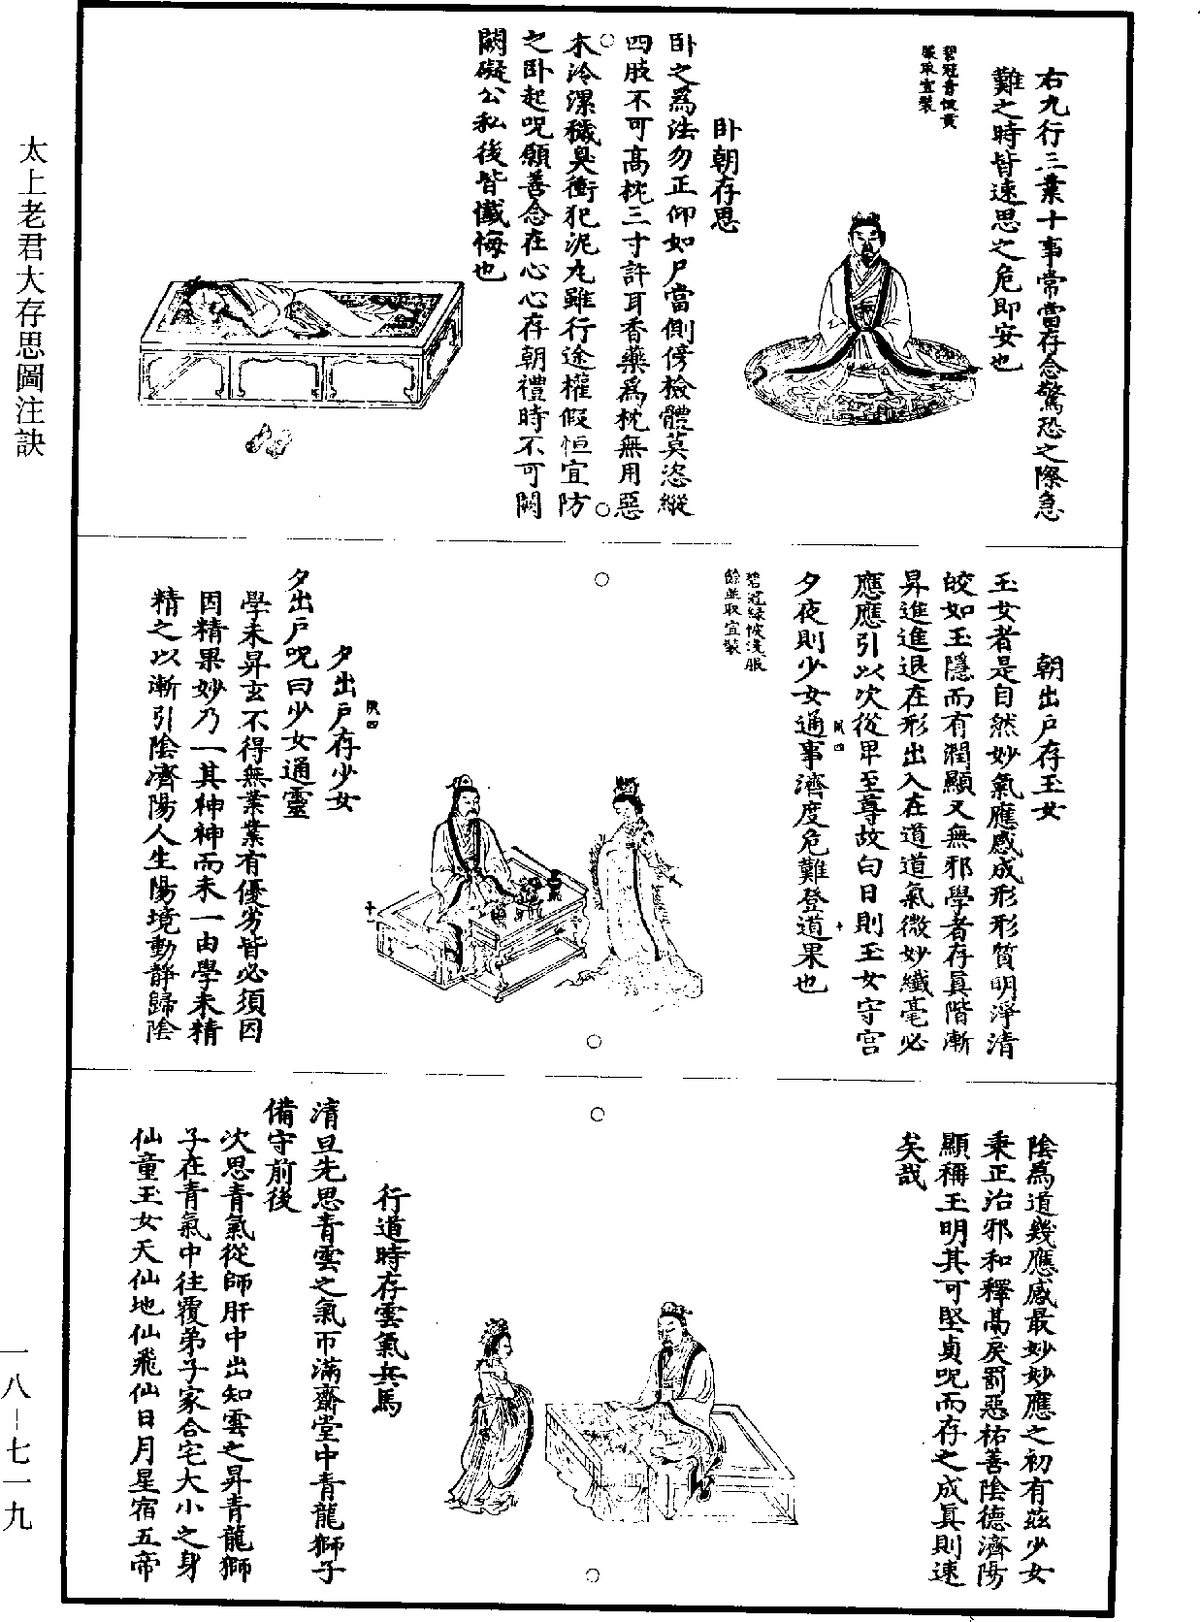 太上老君大存思圖注訣
右九行三業十事常當存念驚恐之際急
難之時皆速思之危即安也
碧冠青帔黃
服取宜裝
卧朝存思
卧之爲法勿正仰如尸當側傍檢體莫恣縱
四肢不可高枕三寸許耳香藥爲枕無用惡
木冷漯穢臭衝犯泥丸雖行途權假恒宜防
之卧起呪願善念在心心存朝禮時不可闕
闕礙公私後皆懺悔也
朝出戶存玉女
玉女者是自然妙氣應感成形形質明淨清
皎如玉隱而有潤顯又無邪學者存真階漸
昇進進退在形出入在道道氣微妙纖毫必
應應引以次從卑至尊故曰日則玉女守宮
夕夜則少女通事濟度危難登道果也
碧冠綠帔淺服
餘並取宜裝
夕出戶存少女
夕出戶呪曰少女通靈
學未昇玄不得無業業有優劣皆必須因
因精果妙乃一其神神而未一由學未精
精之以漸引陰濟陽人生陽境動靜歸陰
陰爲道幾應感最妙妙應之初有茲少女
秉正治邪和釋萵戾罰惡祐善陰德濟陽
顯稱玉明其可堅貞呪而存之成真則速
矣哉
行道時存雲氣兵馬
清旦先思青雲之氣帀滿齋堂中青龍獅子
備守前後
次思青氣從師肝中出如雲之昇青龍獅
子在青氣中往覆弟子家合宅大小之身
仙童玉女天仙地仙飛仙日月星宿五帝
一八-七一九